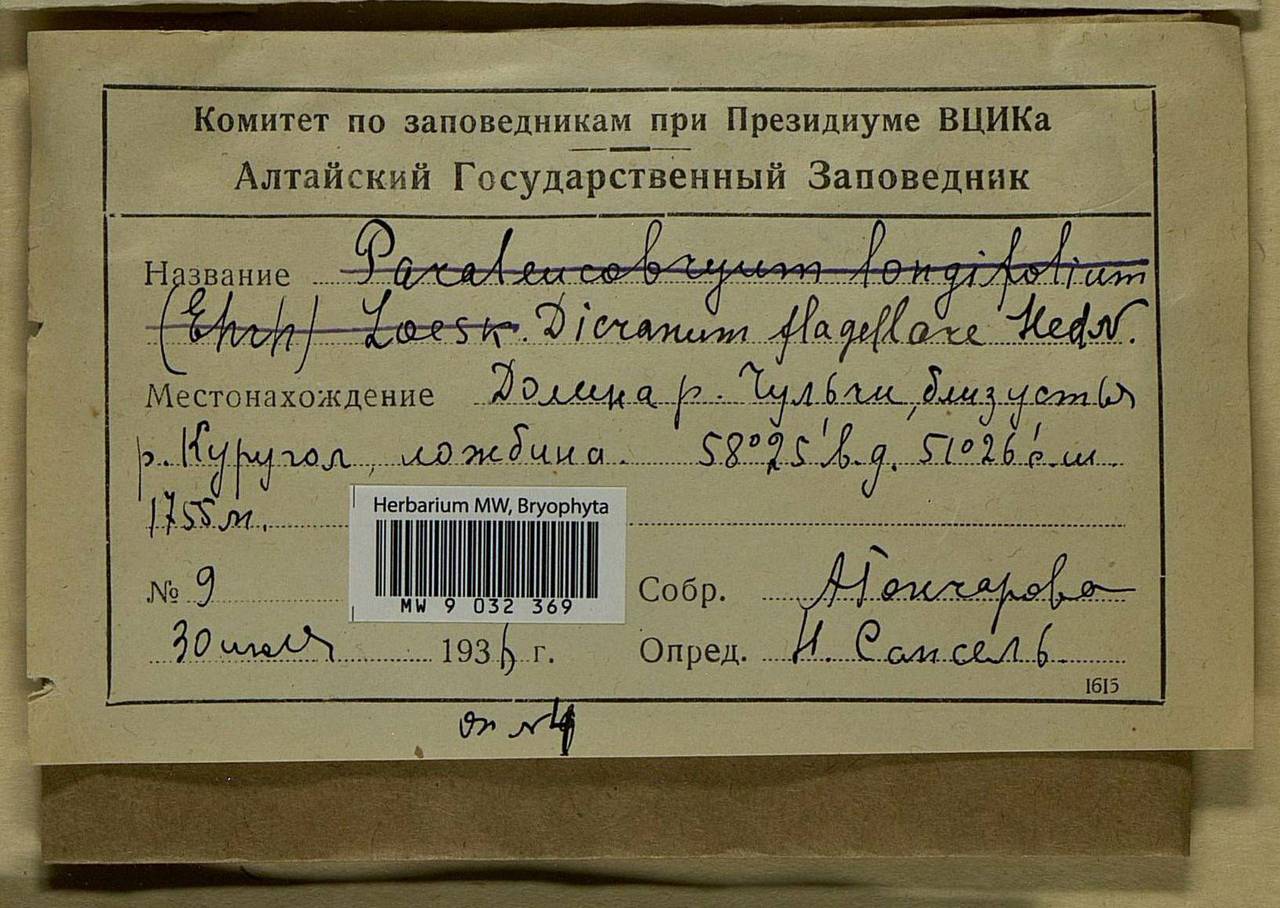 Комитет по заповедникам при Президиуме ВЦИКа
Алтайский Государственный Заповедник
Название Paraleucobryum longifolium
(Ehrh) Loesk. Dicranum flagellare Hedw.
Местонахождение Долина р. Чульчи, близ устья
р. Куругол, ложбина. 58°25′ в.д. 51°26′ с.ш.
1755 м.
Herbarium MW, Bryophyta
MW 9 032 369
№ 9 Собр. А Гончарова
30 июля 193 г. Опред. Н. Сансель
1615
оп №4